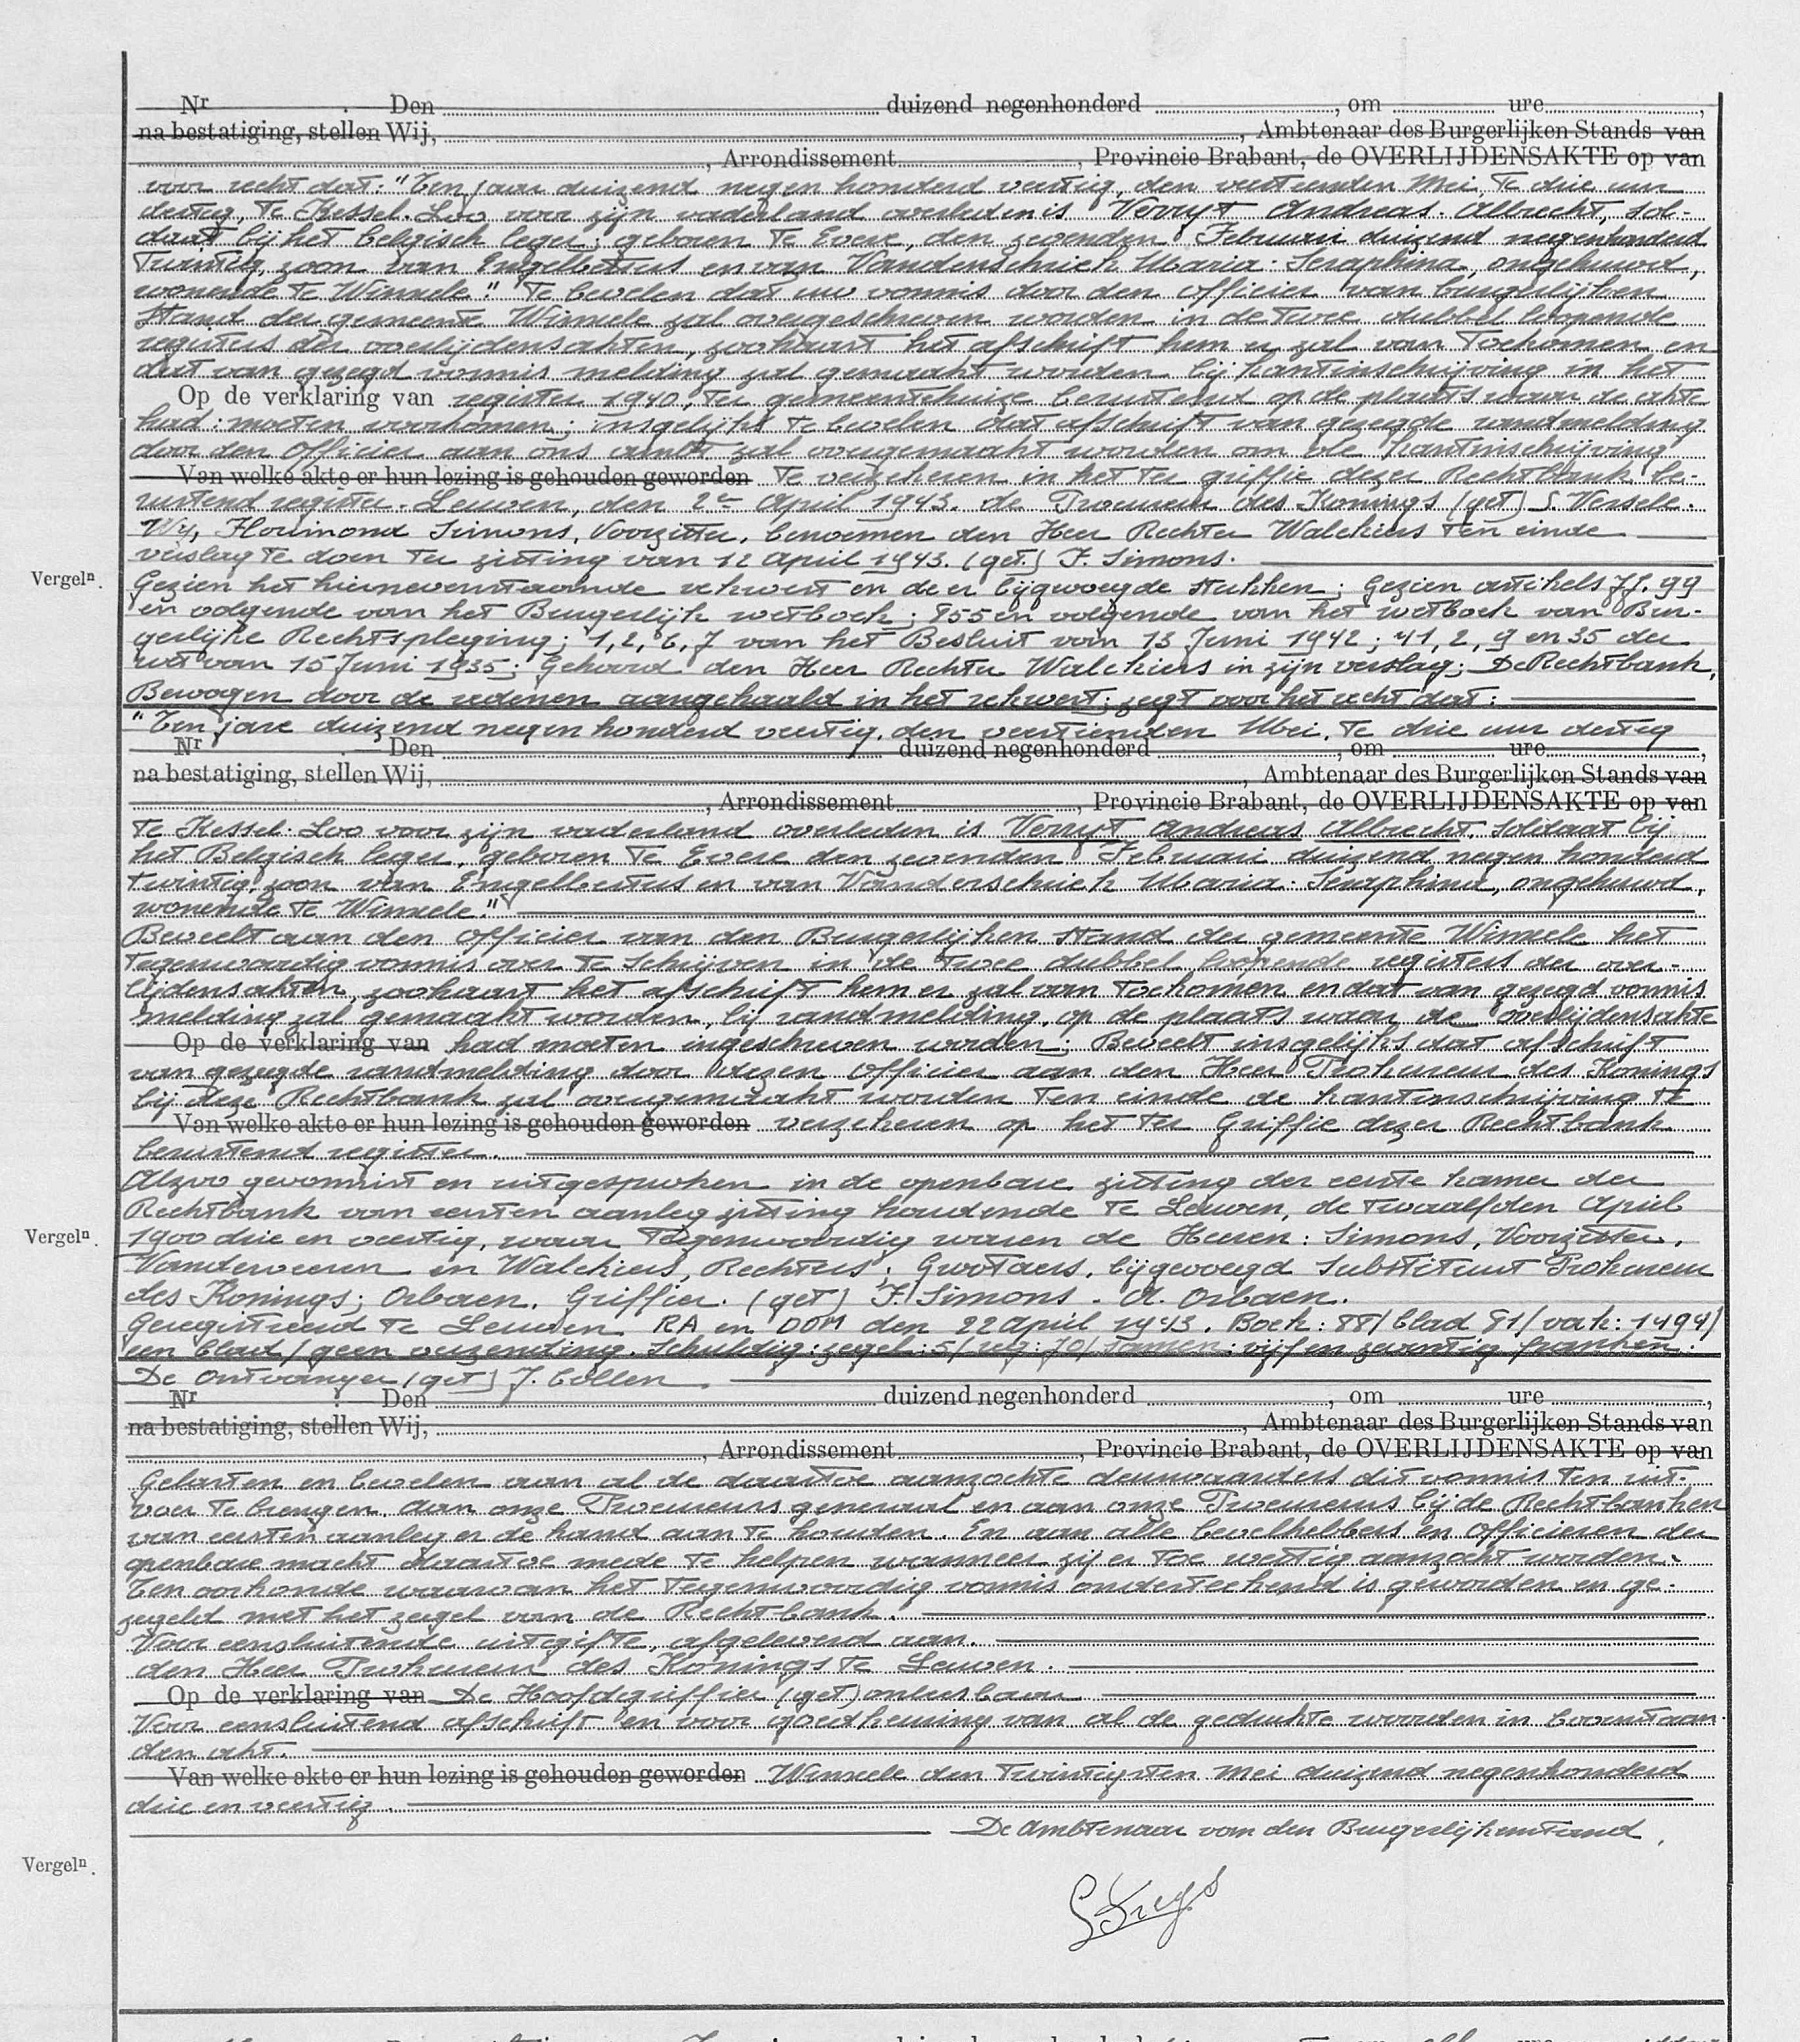 Nr Den duizend negenhonderd , om ure ,
na bestatiging, stellen Wij, , Ambtenaar des Burgerlijken Stands van
, Arrondissement , Provincie Brabant, de OVERLIJDENSAKTE op van
voor recht dat: "Ten jaar duizend negen honderd veertig, den veertienden Mei, te drie uur
dertig, te Kessel-Loo voor zijn vaderland overleden is Verryt Andreas-Albrecht, sol-
daat bij het belgisch leger; geboren te Evere, den zevenden Februari duizend negenhonderd
twintig, zoon van Engelbertus en van Vanderschrieck Maria-Seraphina, ongehuwd,
wonende te Winxele." Te bevelen dat uw vonnis door den officier van burgerlijken
stand der gemeente Winxele zal overgeschreven worden in de twee dubbel loopende
registers der overlijdensakten, zoohaast het afschrift hem er zal van toekomen en
dat van gezegd vonnis melding zal gemaakt worden bij kantinschrijving in het
Op de verklaring van register 1940, ter gemeentehuize berustend op de plaats waar de akte
had moeten voorkomen; insgelijks te bevelen dat afschrift van gezegde randmelding
door den officier aan ons ambt zal overgemaakt worden om de kantinschrijving
Van welke akte er hun lezing is gehouden geworden te verzekeren in het ter griffie dezer Rechtbank be-
rustend register. Leuven, den 2en April 1943. de Procureur des Konings (get) S. Versele.
Wij, Florimond Simons, Voorzitter, benoemen den Heer Rechter Walckiers ten einde
verslag te doen ter zitting van 12 April 1943. (get.) F. Simons.
Vergeln.
Gezien het hiernevenstaande rekwest en de er bijgevoegde stukken; Gezien artikels 77. 99
en volgende van het Burgerlijk wetboek; 855 en volgende van het wetboek van Bur-
gerlijke Rechtspleging; 1, 2, 6, 7 van het Besluit van 13 Juni 1942; 41, 2, 9 en 35 der
wet van 15 Juni 1935; Gehoord den Heer Rechter Walckiers in zijn verslag; De Rechtbank,
Bewogen door de redenen aangehaald in het rekwest; zegt voor het recht dat:
"Ten jare duizend negen honderd veertig, den veertienden Mei, te drie uur dertig
Nr Den duizend negenhonderd , om ure ,
na bestatiging, stellen Wij, , Ambtenaar des Burgerlijken Stands van
, Arrondissement , Provincie Brabant, de OVERLIJDENSAKTE op van
te Kessel-Loo voor zijn vaderland overleden is Verryt Andreas Albrecht, soldaat bij
het Belgisch leger, geboren te Evere den zevenden Februari duizend negen honderd
twintig, zoon van Engelbertus en van Vanderschrieck Maria-Seraphina, ongehuwd,
wonende te Winxele."
Beveelt aan den officier van den Burgerlijken stand der gemeente Winxele het
tegenwoordig vonnis over te schrijven in de twee dubbel loopende registers der over-
lijdensakten, zoohaast het afschrift hem er zal van toekomen en dat van gezegd vonnis
melding zal gemaakt worden, bij randmelding, op de plaats waar de overlijdensakte
Op de verklaring van had moeten ingeschreven worden; Beveelt insgelijks dat afschrift
van gezegde randmelding door dezen officier aan den Heer Prokureur des Konings
bij deze Rechtbank zal overgemaakt worden ten einde de kantinschrijving te
Van welke akte er hun lezing is gehouden geworden verzekeren op het ter Griffie dezer Rechtbank
berustend register.
Alzoo gevonnist en uitgesproken in de openbare zitting der eerste kamer der
Rechtbank van eersten aanleg zitting houdende te Leuven, de twaalfden April
Vergeln.
1900 drie en veertig, waar tegenwoordig waren de Heeren: Simons, Voorzitter,
Vanderveeren en Walckiers, Rechters; Grootaers, bijgevoegd Substituut Prokureur
des Konings; Orbaen, Griffier. (get) F. Simons - A. Orbaen.
Geregistreerd te Leuven RA en DOM den 22 April 1943. Boek: 88/ blad 81/ vak: 1494/
een blad/ geen verzending. Schuldig: zegel: 5/ reg: 70/ samen: vijf en zeventig franken.
De Ontvanger (get) J. Collen
Nr Den duizend negenhonderd , om ure ,
na bestatiging, stellen Wij, , Ambtenaar des Burgerlijken Stands van
, Arrondissement , Provincie Brabant, de OVERLIJDENSAKTE op van
Gelasten en bevelen aan al de daartoe aanzochte deurwaarders dit vonnis ten uit-
voer te brengen. Aan onze Procureurs generaal en aan onze Procureurs bij de Rechtbanken
van eersten aanleg er de hand aan te houden. En aan alle bevelhebbers en officieren der
openbare macht daartoe mede te helpen wanneer zij er toe wettig aanzocht worden.
Ten oorkonde waarvan het tegenwoordig vonnis onderteekend is geworden en ge-
zegeld met het zegel van de Rechtbank.
Voor eensluitende uitgifte, afgeleverd aan.
den Heer Prokureur des Konings te Leuven.
Op de verklaring van De Hoofdgriffier (get) onleesbaar
Voor eensluitend afschrift en voor goedkeuring van al de gedrukte woorden in bovenstaan-
den akt.
Van welke akte er hun lezing is gehouden geworden Winxele den twintigsten Mei duizend negenhonderd
drie en veertig.
De Ambtenaar van den Burgerlijkenstand,
Vergeln.